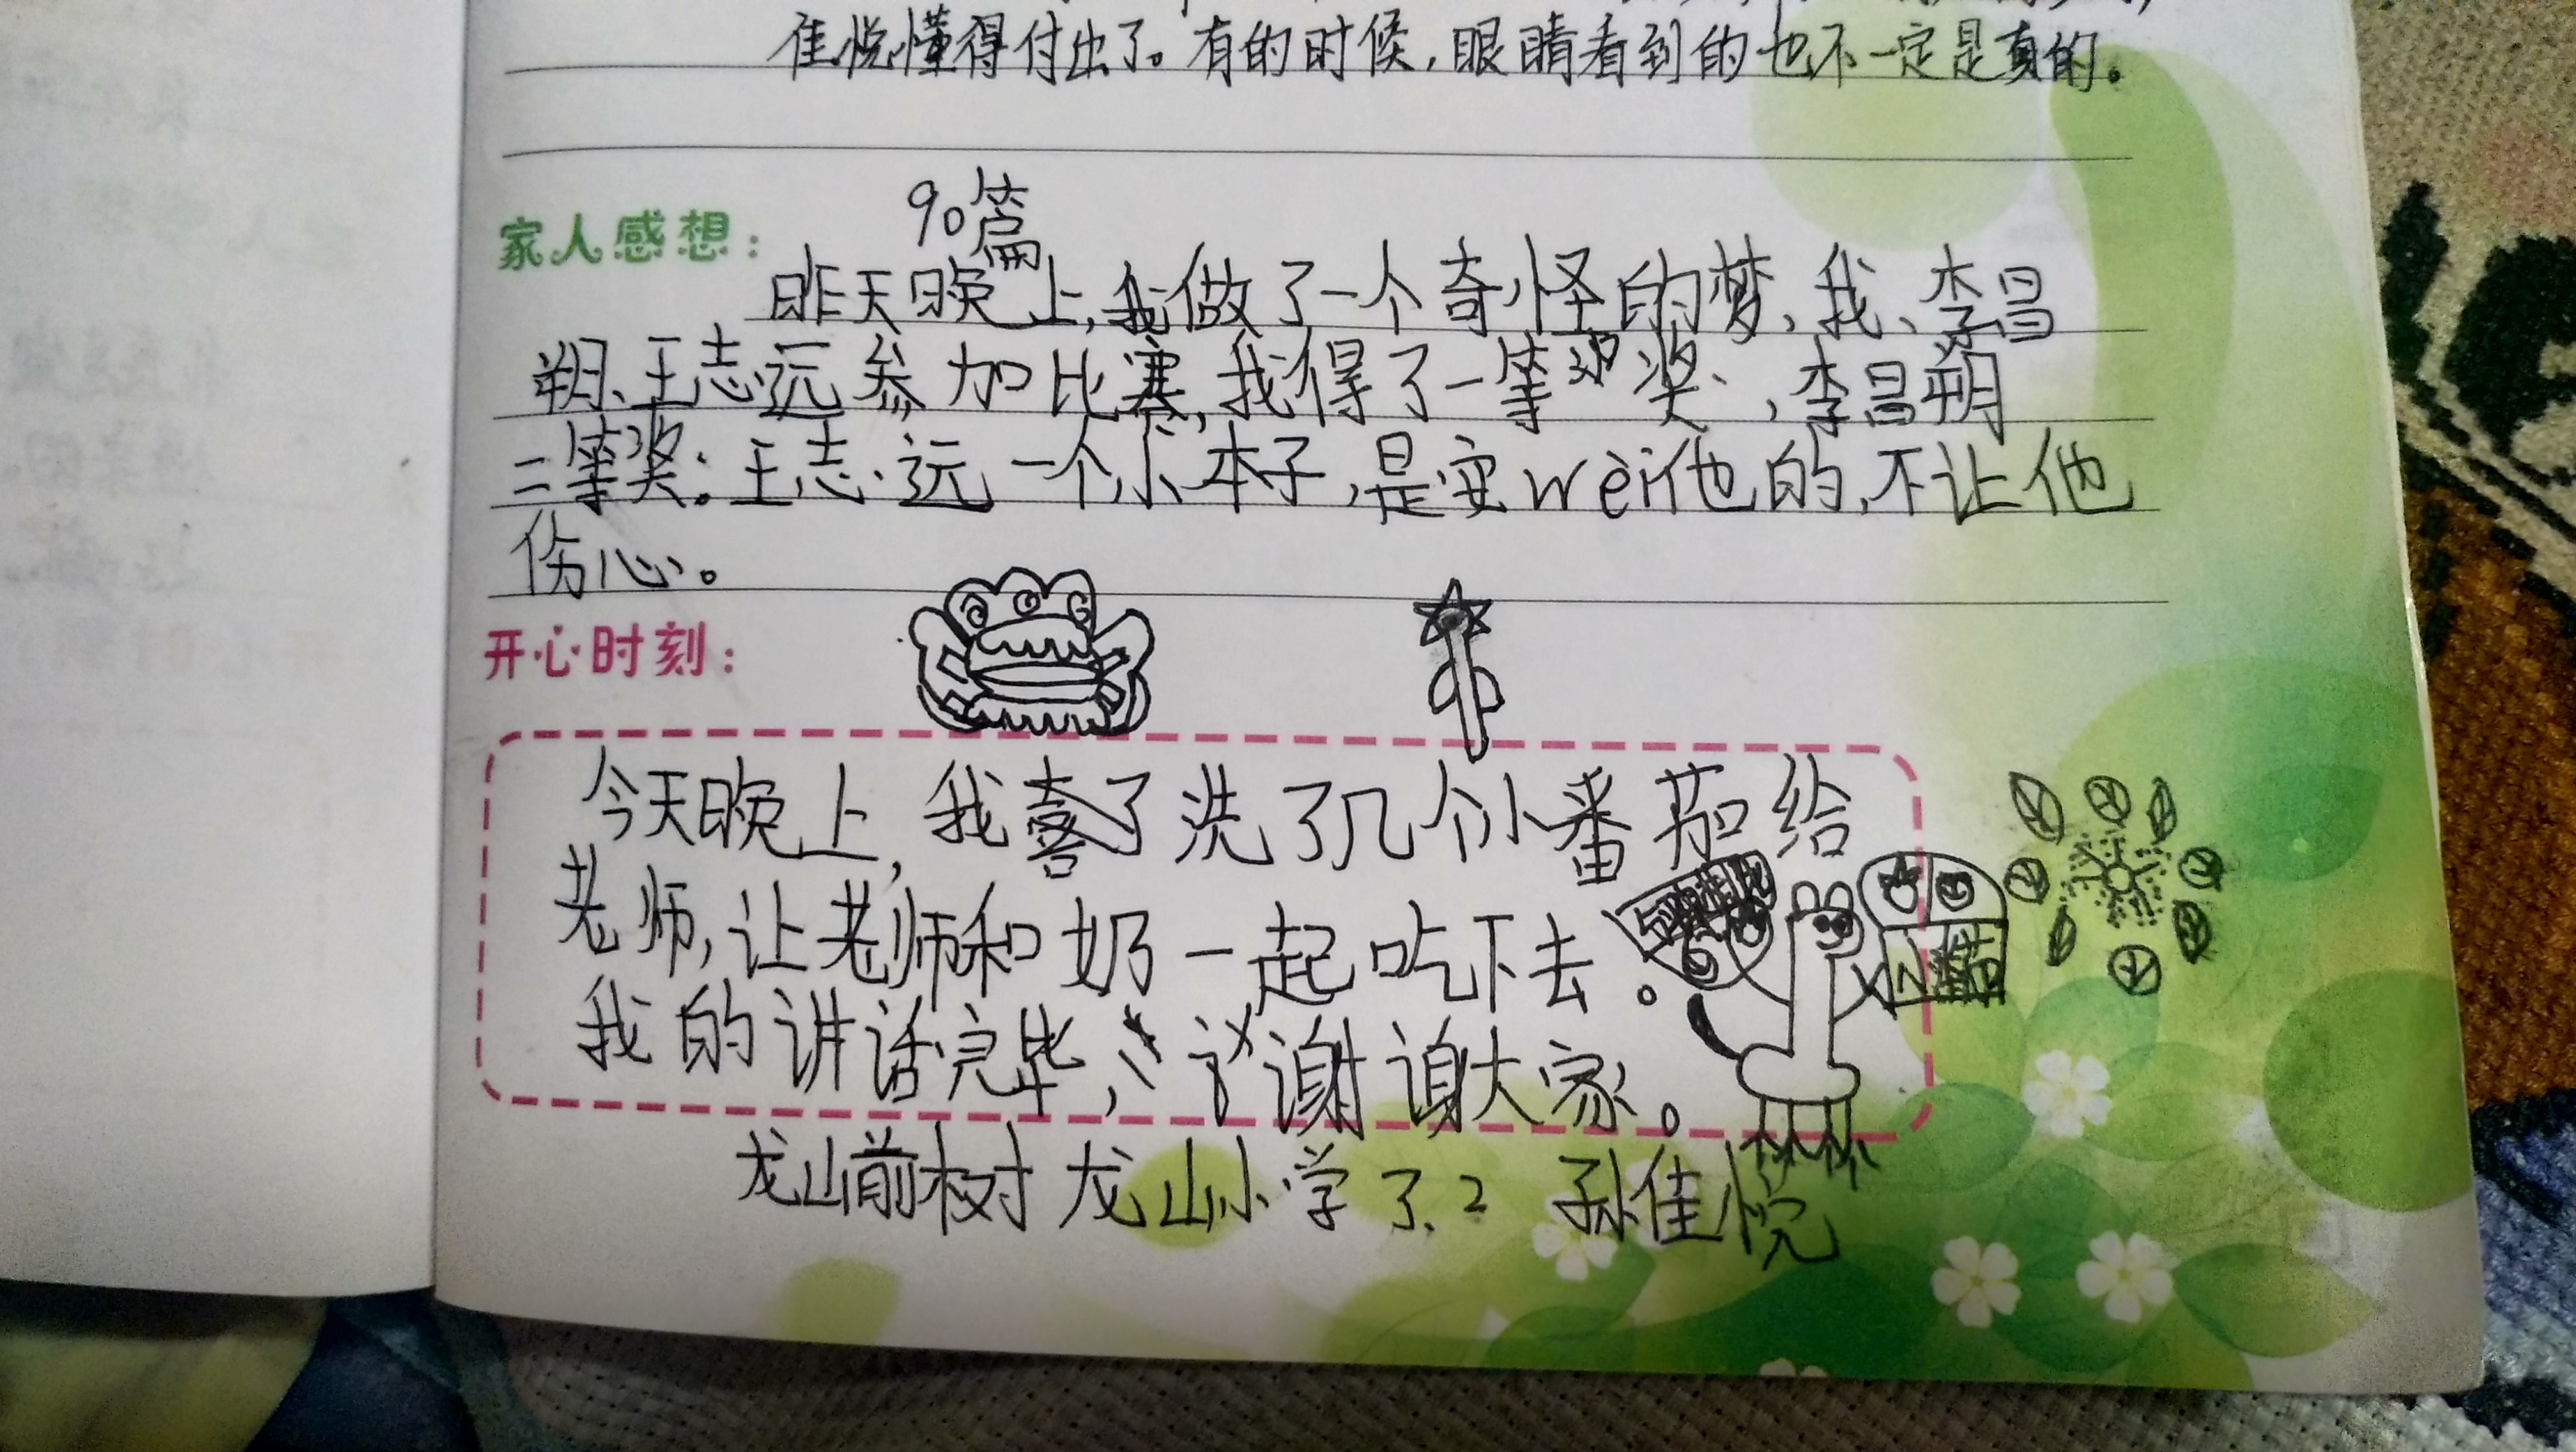 佳悦懂得付出了。有的时候,眼睛看到的也不一定是真的。
90篇
家人感想:
昨天晚上,我做了一个奇怪的梦,我、李昌
朔、王志远参加比赛,我得了一等奖,李昌朔
二等奖;王志远一个小本子,是安wèi他的,不让他
伤心。
开心时刻:
今天晚上,我喜了洗了几个小番茄给
老师,让老师和奶一起吃下去。
我的讲话完毕,谢谢大家。
龙山前树 龙山小学 了.2 孙佳悦